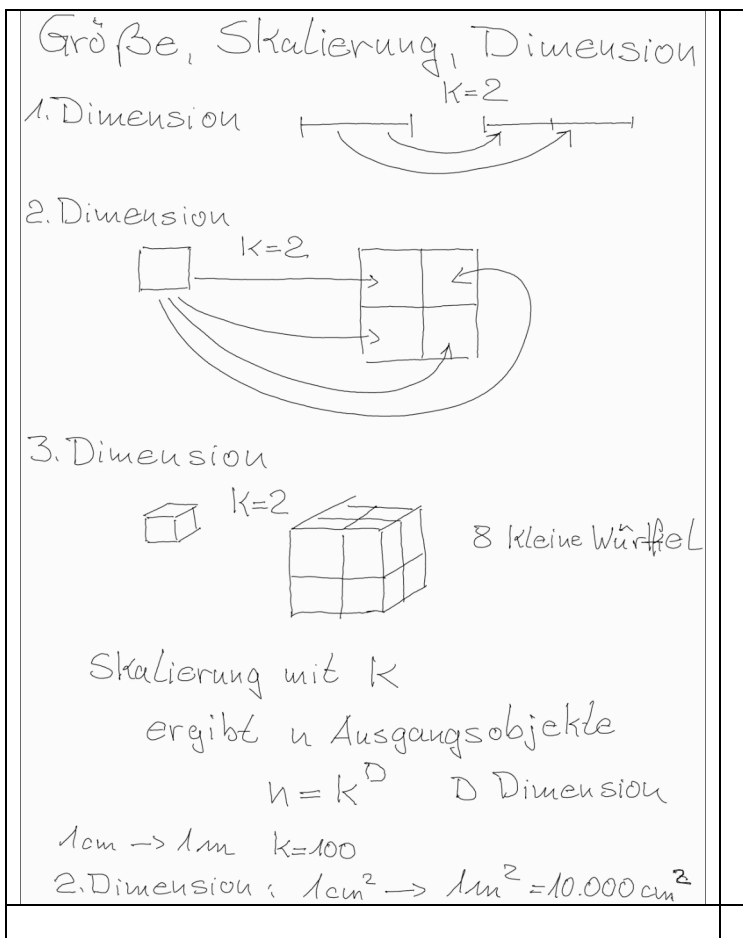 Größe, Skalierung, Dimension
1. Dimension
K=2
2. Dimension
K=2
3. Dimension
K=2
8 kleine Würfel
Skalierung mit K
ergibt n Ausgangsobjekte
n = k^D D Dimension
1cm -> 1m K=100
2. Dimension: 1cm² -> 1m² = 10.000 cm²